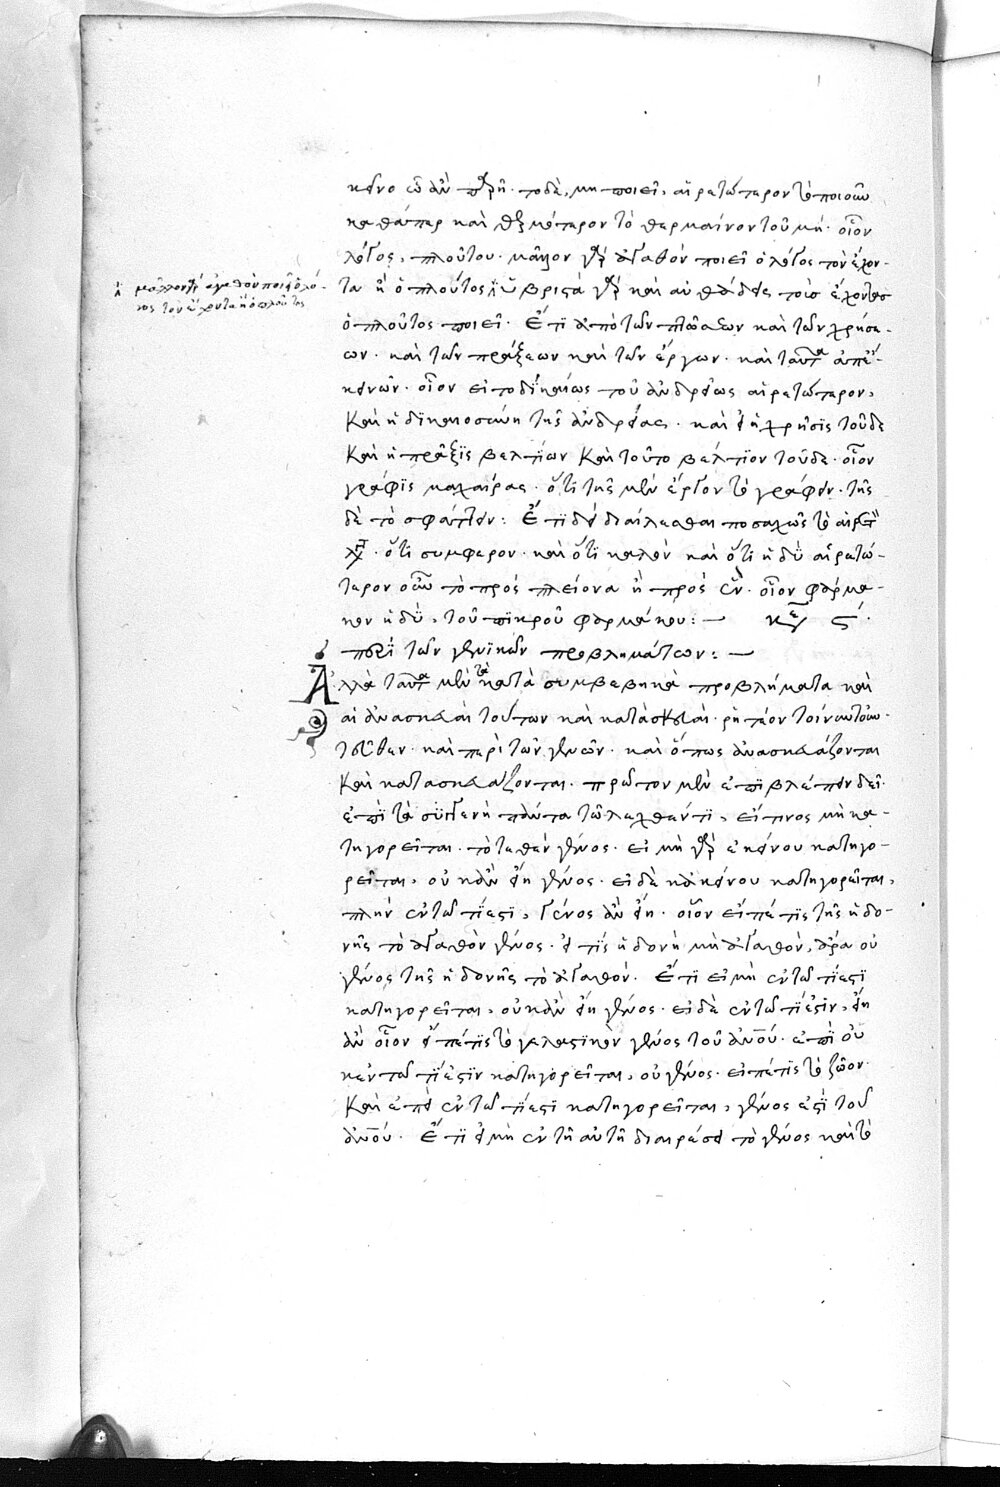 κεῖνο ᾧ ἂν παρῇ. τὸ δὲ, μὴ ποιεῖ, αἱρετώτερον τὸ ποιοῦν
καθάπερ καὶ θερμότερον τὸ θερμαῖνον τοῦ μή. οἷον
λόγος, πλούτου. μᾶλλον γὰρ ἀγαθὸν ποιεῖ ὁ λόγος τὸν ἔχον-
τα ἢ ὁ πλοῦτος ὑβριστὰ γὰρ καὶ αὐθάδεις τοὺς ἔχοντας
μᾶλλον γὰρ ἀγαθὸν ποιεῖ ὁ λό-
γος τὸν ἔχοντα ἢ ὁ πλοῦτος
ὁ πλοῦτος ποιεῖ. Ἔτι ἀπὸ τῶν πτώσεων καὶ τῶν χρήσε-
ων. καὶ τῶν πράξεων καὶ τῶν ἔργων. καὶ ταῦτα ἀπ'
κείνων. οἷον εἰ τὸ δικαίως τοῦ ἀνδρείως αἱρετώτερον,
Καὶ ἡ δικαιοσύνη τῆς ἀνδρείας. καὶ εἰ ἡ χρῆσις τοῦδε
Καὶ ἡ πρᾶξις βελτίων Καὶ τοῦτο βέλτιον τοῦδε. οἷον
γραφὶς μαχαίρας. ὅτι τῆς μὲν ἔργον τὸ γράφειν. τῆς
δὲ τὸ σφάττειν: Ἔτι δεῖ διαιλεσθαι ποσαχῶς τὸ αἱρετὸν
λέγεται. ὅτι συμφέρον. καὶ ὅτι καλὸν καὶ ὅτι ἡδὺ αἱρετώ-
τερον οὖν τὸ πρὸς πλείονα ἢ πρὸς ἕν. οἷον φάρμα-
κον ἡδὺ, τοῦ πικροῦ φαρμάκου: — κεφ ϛ'.
περὶ τῶν γενικῶν προβλημάτων: —
Ἀλλὰ ταῦτα μὲν τὰ κατὰ συμβεβηκὸς προβλήματα καὶ
αἱ ἀνασκευαὶ τούτων καὶ κατασκευαί. ῥητέον τοίνυν τοὐν-
τεῦθεν. καὶ περὶ τῶν γενῶν. καὶ ὅπως ἀνασκευάζονται
Καὶ κατασκευάζονται. πρῶτον μὲν ἐπιβλέπειν δεῖ
ἐπὶ τὰ συγγενῆ πάντα τῷ λεχθέντι, εἴ τινος μὴ κα-
τηγορεῖται. τὸ τεθὲν γένος. εἰ μὴ γὰρ ἐκείνου κατηγο-
ρεῖται, οὐκ ἂν εἴη γένος. εἰ δὲ κἀκείνου κατηγορεῖται,
πλὴν ἐν τῷ τί ἐστι, γένος ἂν εἴη. οἷον εἴπέ τις τῆς ἡδο-
νῆς τὸ ἀγαθὸν γένος. εἴ τις ἡδονὴ μὴ ἀγαθὸν, ἄρα οὐ
γένος τῆς ἡδονῆς τὸ ἀγαθόν. Ἔτι εἰ μὴ ἐν τῷ τί ἐστι
κατηγορεῖται, οὐκ ἂν εἴη γένος. εἰ δὲ ἐν τῷ τί ἐστιν, εἴη
ἂν οἷον εἶπέ τις τὸ γελαστικὸν γένος τοῦ ἀνου. ἐπεὶ οὐ
κἐν τῷ τί ἐστιν κατηγορεῖται, οὐ γένος. εἶπέ τις τὸ ζῶον
Καὶ ἐπεὶ ἐν τῷ τί ἐστι κατηγορεῖται, γένος ἐστὶ τοῦ
ἀνου. Ἔτι εἰ μὴ ἐν τῇ αὐτῇ διαιρέσει τὸ γένος καὶ τὸ